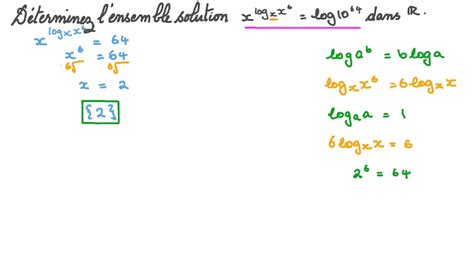 Déterminez l'ensemble solution x^{log_x x^6} = log10^{64} dans ℝ.
x^{log_x x^6} = 64
x^6 = 64
6√ 6√
x = 2
{2}
log a^b = b log a
log_x x^6 = 6 log_x x
log_a a = 1
6 log_x x = 6
2^6 = 64